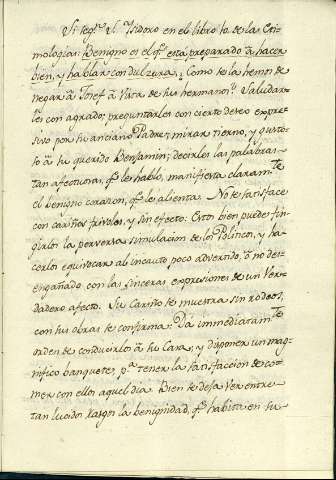 Si segn. S. Ysidoro en el libro 10. de las Eti-
mologias: Benigno es el qe. està preparado à hacer
bien, y hablar con dulzura; Como se la hemos de
negar à Josef à vista de sus hermanos? Saludar-
les con agrado; preguntarles con cierto deseo expre-
sivo por su anciano Padre; mirar tierno, y gusto-
so à su querido Benjamin; decirles las palabras
tan afectuosas, qe. les hablò, manifiesta claramte.
el benigno corazon, qe. le alienta. No se satisface
con cariños frivolos, y sin efecto. Estos bien puede fin-
girlos la perversa simulacion de los Politicos, y ha-
cerlos equivocar al incauto poco advertido, ò no des-
engañado con las sinceras expresiones de un ver-
dadero afecto. Su cariño se muestra sin rodeos,
con sus obras se confirma: Dà immediatamte.
orden de conducirlos à su Casa, y disponer un mag-
nifico banquete, pa. tener la satisfaccion de co-
mer con ellos aquel dia. Bien se deja ver entre
tan lucidos rasgos la benignidad, qe. habita en su